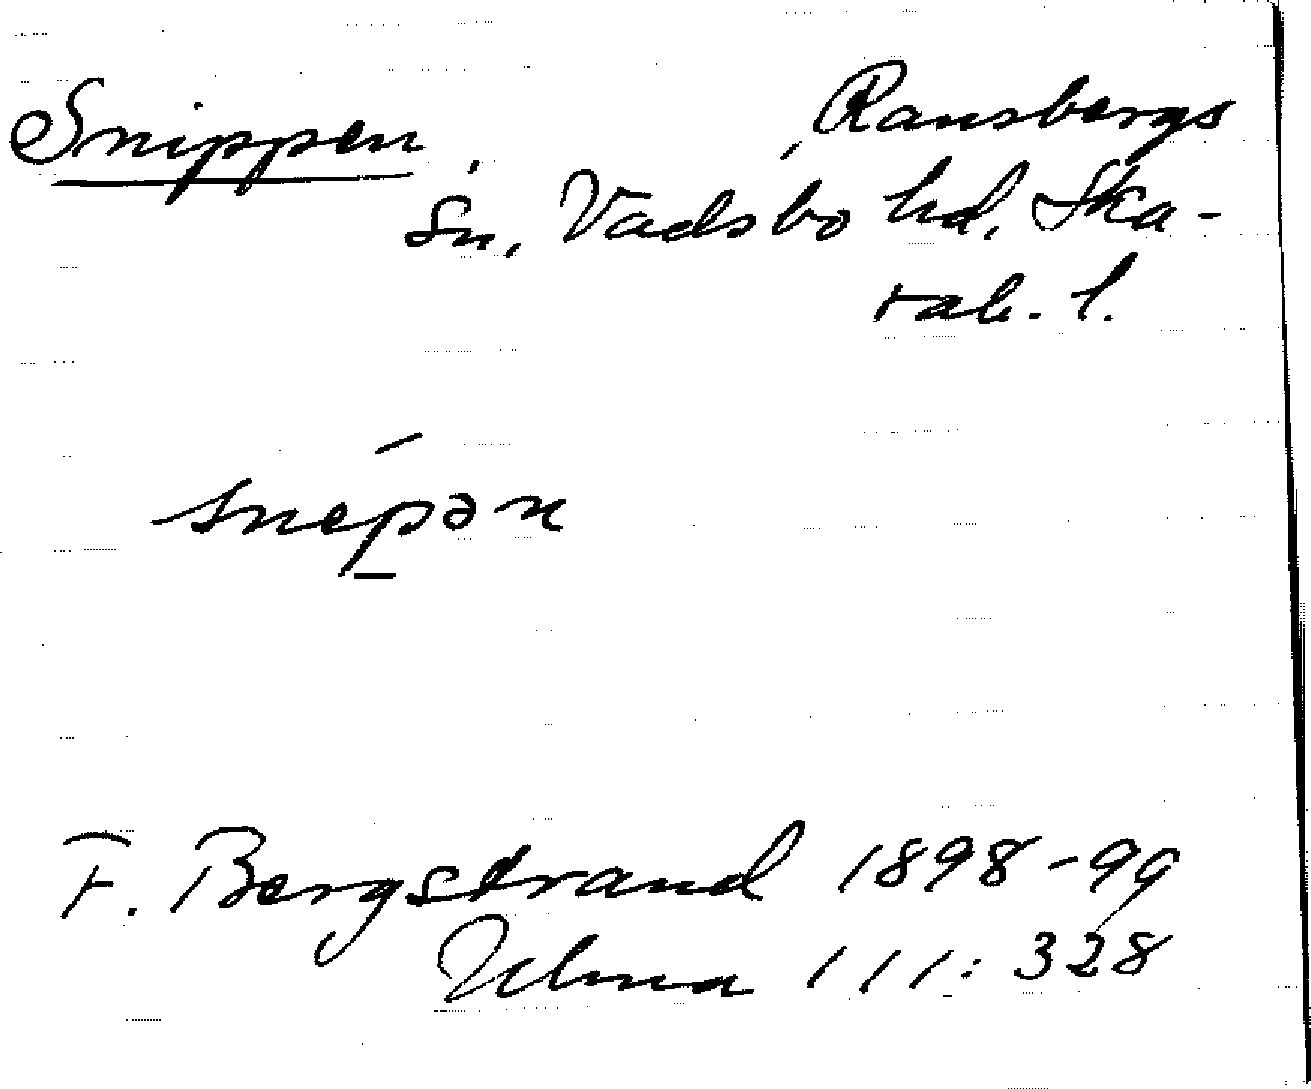 Snippen, Ransbergs
sn, Vadsbo hd, Ska-
rab. l.
snépən
F. Bergstrand 1898-99
Ulma 111: 328